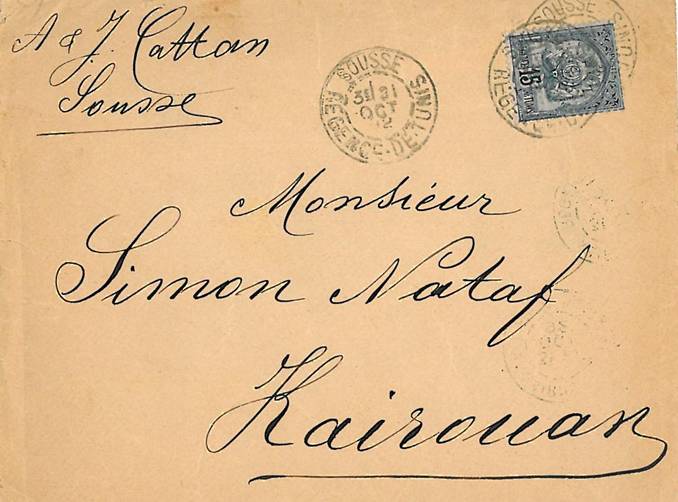 A & J. Cattan
Sousse
SOUSSE
31
OCT
92
REGENCE-DE-TUNIS
SOUSSE
15
Monsieur
Simon Nataf
Kairouan